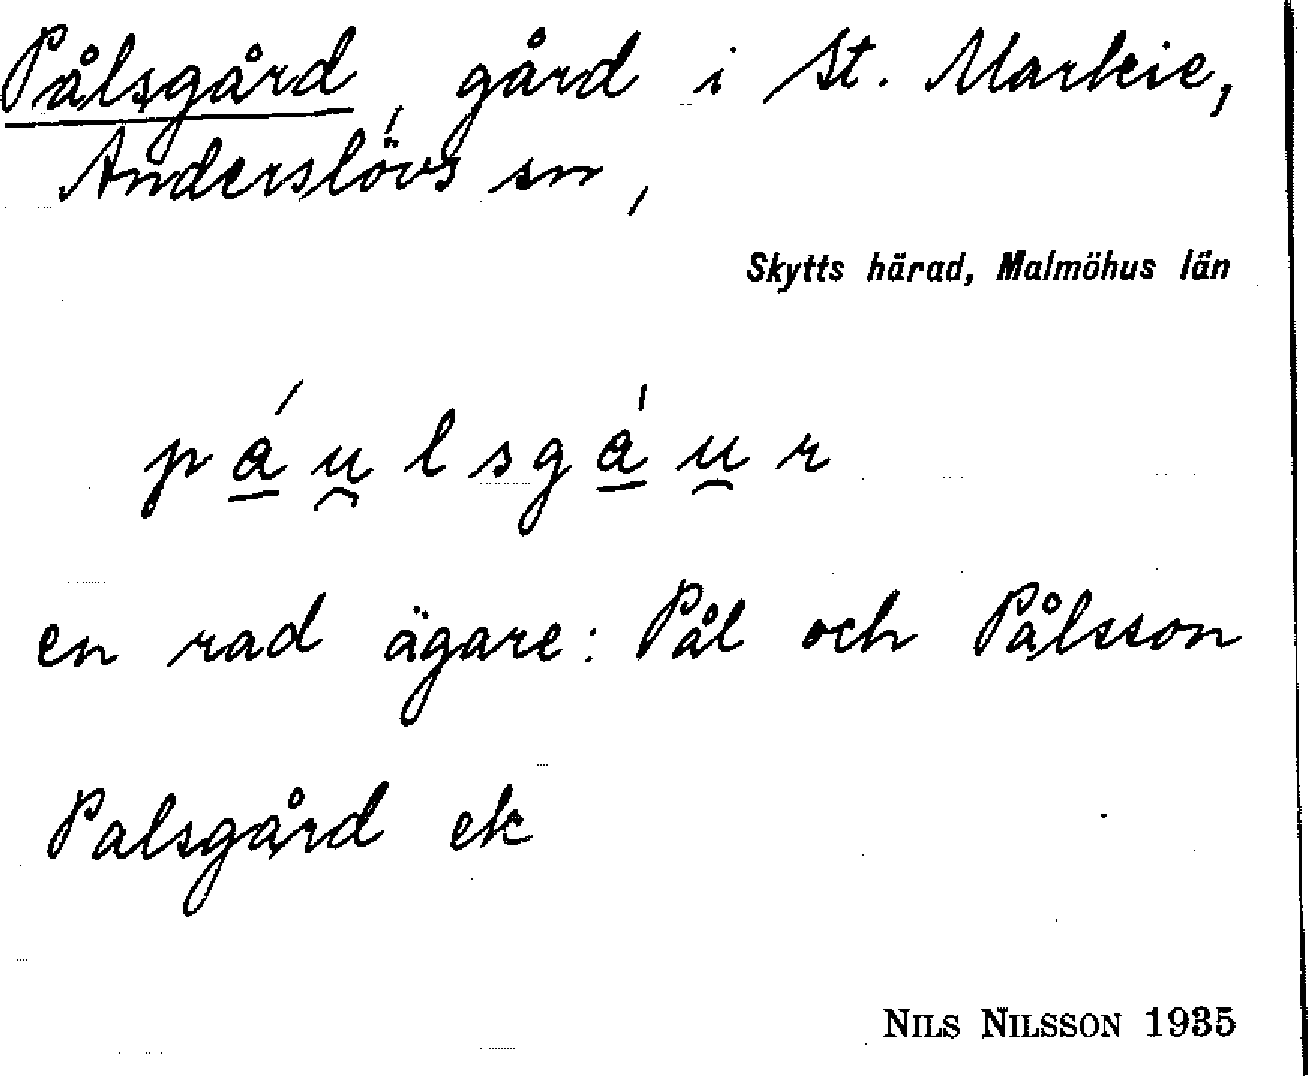 Pålsgård, gård i St. Markie,
Anderslövs sn,
Skytts härad, Malmöhus län
pá̱u̯lsgá̱u̯r
en rad ägare: Pål och Pålsson
Palsgård ek
NILS NILSSON 1935